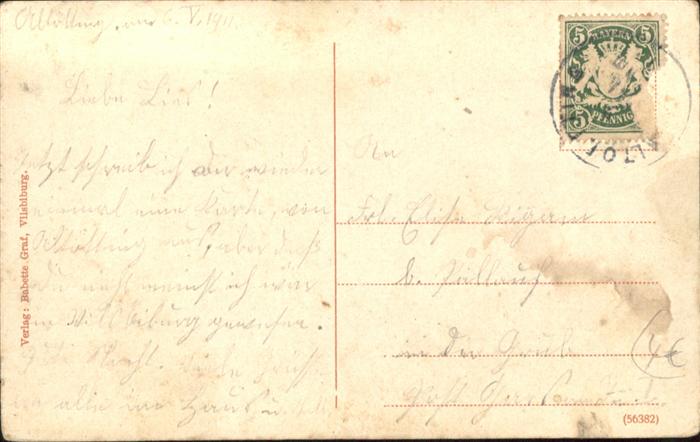 Altötting, am 6. V. 1911.
Liebe Lies!
Jetzt schreib ich dir wieder
einmal eine Karte, von
Altötting aus, aber daß
Du nicht meinst ich wär
in Vilsbiburg gewesen.
Gute Nacht. Viele Grüße
an alle im Haus
Verlag: Babette Graf, Vilsbiburg.
5 BAYERN 5
5 PFENNIG 5
ALTÖTTING
An
Frl. Elise
b.
in der Grub
Post
4€
(56382)